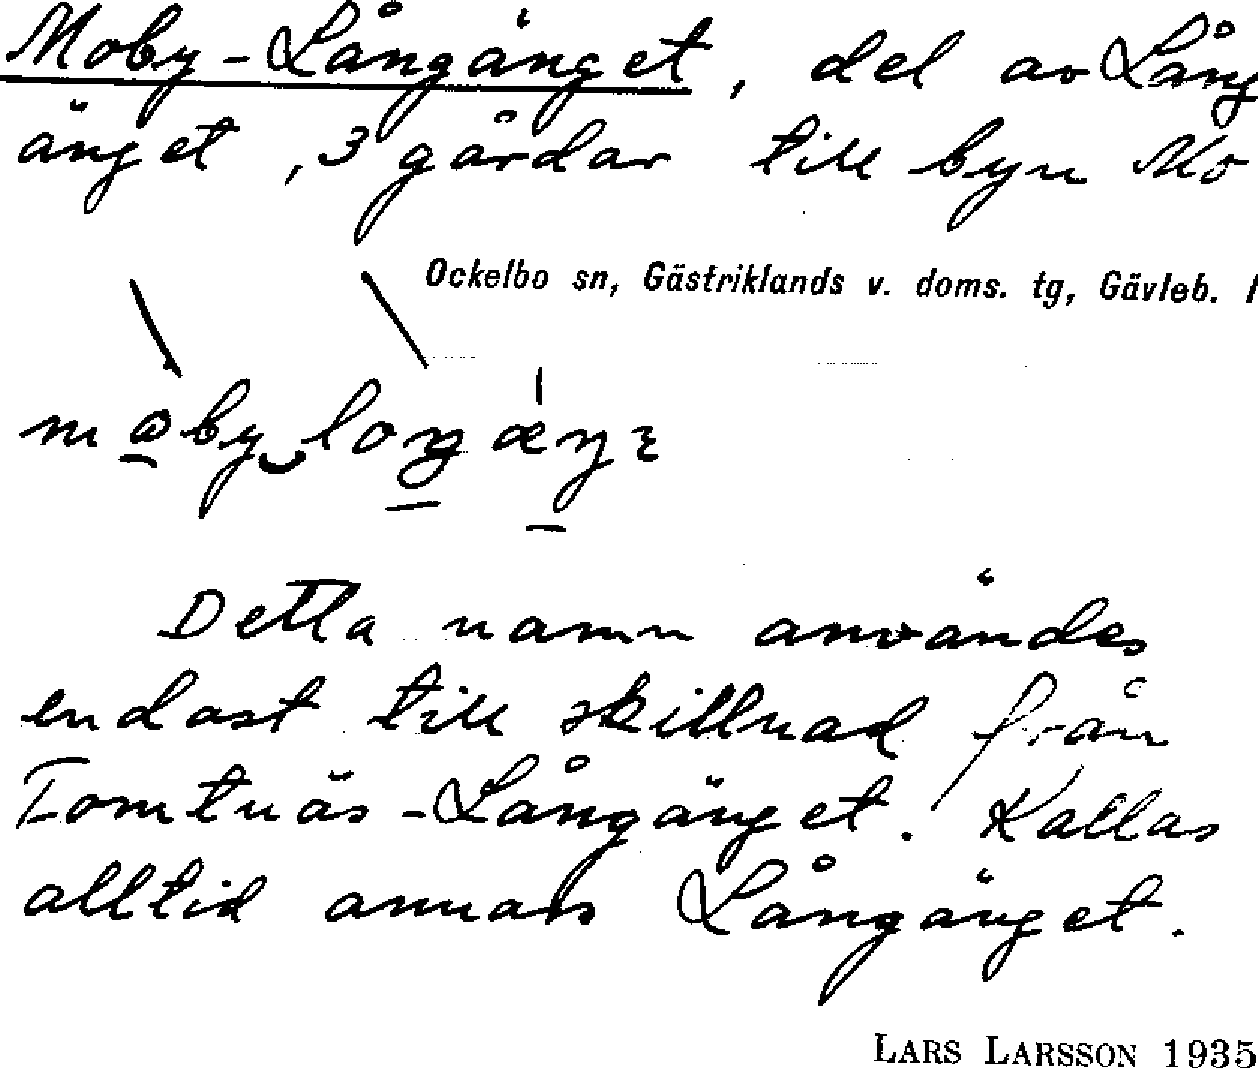 Moby-Långänget, del av Lång
änget, 3 gårdar till byn Mo
Ockelbo sn, Gästriklands v. doms. tg, Gävleb. l
Detta namn användes
endast till skillnad från
Tomtnäs-Långänget. Kallas
alltid annars Långänget.
LARS LARSSON 1935